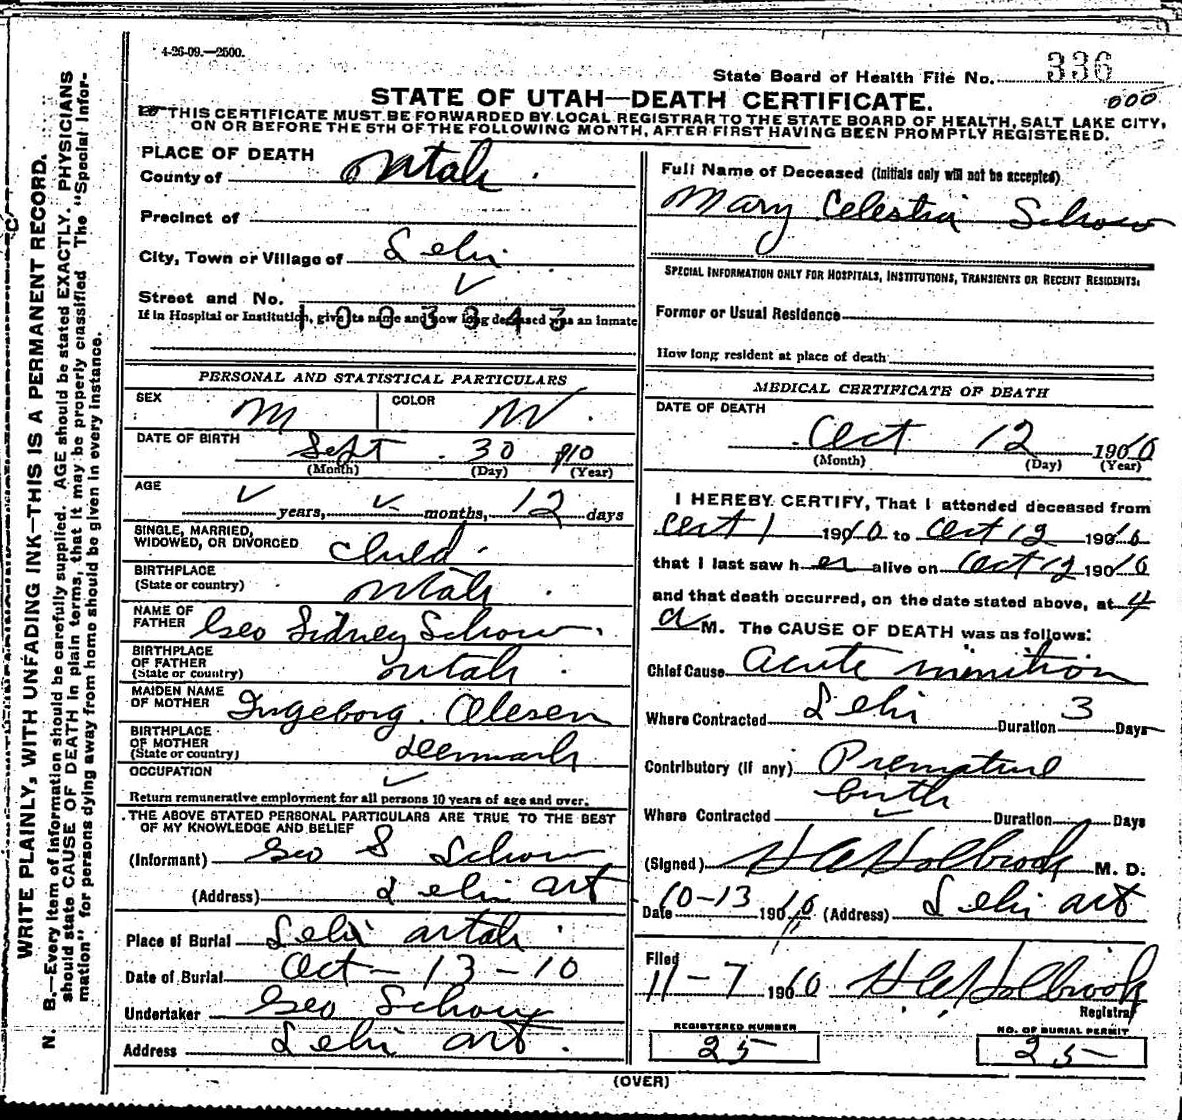 4-26-09.—2500.
State Board of Health File No. 336
000
STATE OF UTAH—DEATH CERTIFICATE.
THIS CERTIFICATE MUST BE FORWARDED BY LOCAL REGISTRAR TO THE STATE BOARD OF HEALTH, SALT LAKE CITY,
ON OR BEFORE THE 5TH OF THE FOLLOWING MONTH, AFTER FIRST HAVING BEEN PROMPTLY REGISTERED.
WRITE PLAINLY, WITH UNFADING INK—THIS IS A PERMANENT RECORD.
N. B.—Every item of information should be carefully supplied. AGE should be stated EXACTLY. PHYSICIANS
should state CAUSE OF DEATH in plain terms, that it may be properly classified. The "Special Infor-
mation" for persons dying away from home should be given in every instance.
PLACE OF DEATH
County of Utah
Precinct of
City, Town or Village of Lehi
Street and No.
1003343
If in Hospital or Institution, give its name and how long deceased was an inmate
PERSONAL AND STATISTICAL PARTICULARS
SEX M COLOR W
DATE OF BIRTH Sept 30 910
(Month) (Day) (Year)
AGE ✓ years, ✓ months, 12 days
SINGLE, MARRIED,
WIDOWED, OR DIVORCED Child
BIRTHPLACE
(State or country) Utah
NAME OF
FATHER Geo Sidney Schow
BIRTHPLACE
OF FATHER
(State or country) Utah
MAIDEN NAME
OF MOTHER Ingeborg Olesen
BIRTHPLACE
OF MOTHER
(State or country) Denmark
OCCUPATION ✓
Return remunerative employment for all persons 10 years of age and over.
THE ABOVE STATED PERSONAL PARTICULARS ARE TRUE TO THE BEST
OF MY KNOWLEDGE AND BELIEF
(Informant) Geo S Schow
(Address) Lehi Ut
Place of Burial Lehi Utah
Date of Burial Oct-13-10
Undertaker Geo Schow
Address Lehi Ut
Full Name of Deceased (Initials only will not be accepted)
Mary Celestia Schow
SPECIAL INFORMATION ONLY FOR HOSPITALS, INSTITUTIONS, TRANSIENTS OR RECENT RESIDENTS.
Former or Usual Residence
How long resident at place of death
MEDICAL CERTIFICATE OF DEATH
DATE OF DEATH
Oct 12 1910
(Month) (Day) (Year)
I HEREBY CERTIFY, That I attended deceased from
Oct 1 1910 to Oct 12 1910
that I last saw her alive on Oct 12 1910
and that death occurred, on the date stated above, at 4
a M. The CAUSE OF DEATH was as follows:
Chief Cause Acute
Where Contracted Lehi Duration 3 Days
Contributory (if any) Premature
birth
Where Contracted ✓ Duration Days
(Signed) H A Holbrook M. D.
Date 10-13 1910 (Address) Lehi Ut
Filed
11-7 1910 H A Holbrook
Registrar
REGISTERED NUMBER
25
NO. OF BURIAL PERMIT
25
(OVER)